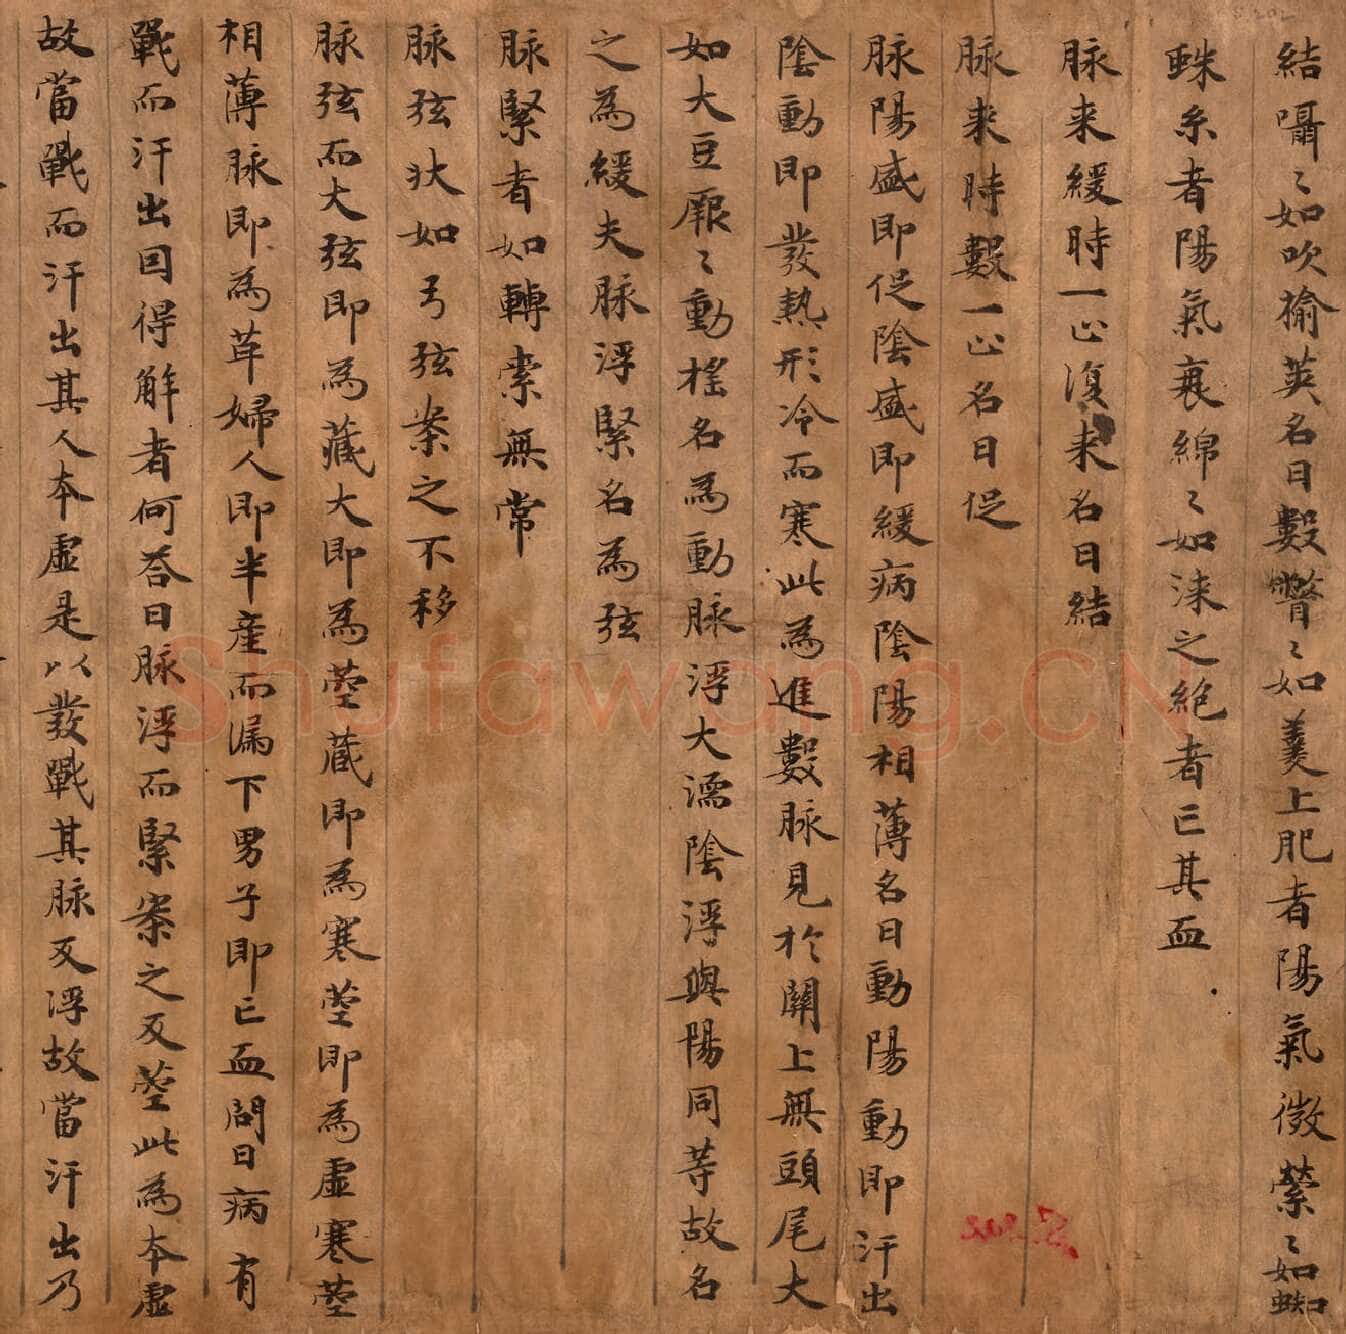 結囁〻如吹榆莢名曰數瞥〻如羹上肥者陽氣微縈〻如蜘
蛛糸者陽氣衰綿〻如涑之絶者亡其血
脉来緩時一止復来名曰結
脉来時數一止名曰促
脉陽盛即促陰盛即緩病陰陽相薄名曰動陽動即汗出
陰動即發熱形冷而寒此為進數脉見於關上無頭尾大
如大豆厥〻動榣名為動脉浮大濡陰浮與陽同等故名
之為緩夫脉浮緊名為弦
脉緊者如轉索無常
脉弦状如弓弦案之不移
脉弦而大弦即為藏大即為莖蔵即為寒莖即為虚寒莖
相薄脉即為革婦人即半産而漏下男子即亡血問曰病有
戰而汗出因得解者何荅曰脉浮而緊案之反莖此為本虚
故當戰而汗出其人本虚是以發戰其脉反浮故當汗出乃
Shufawang.CN
S.202